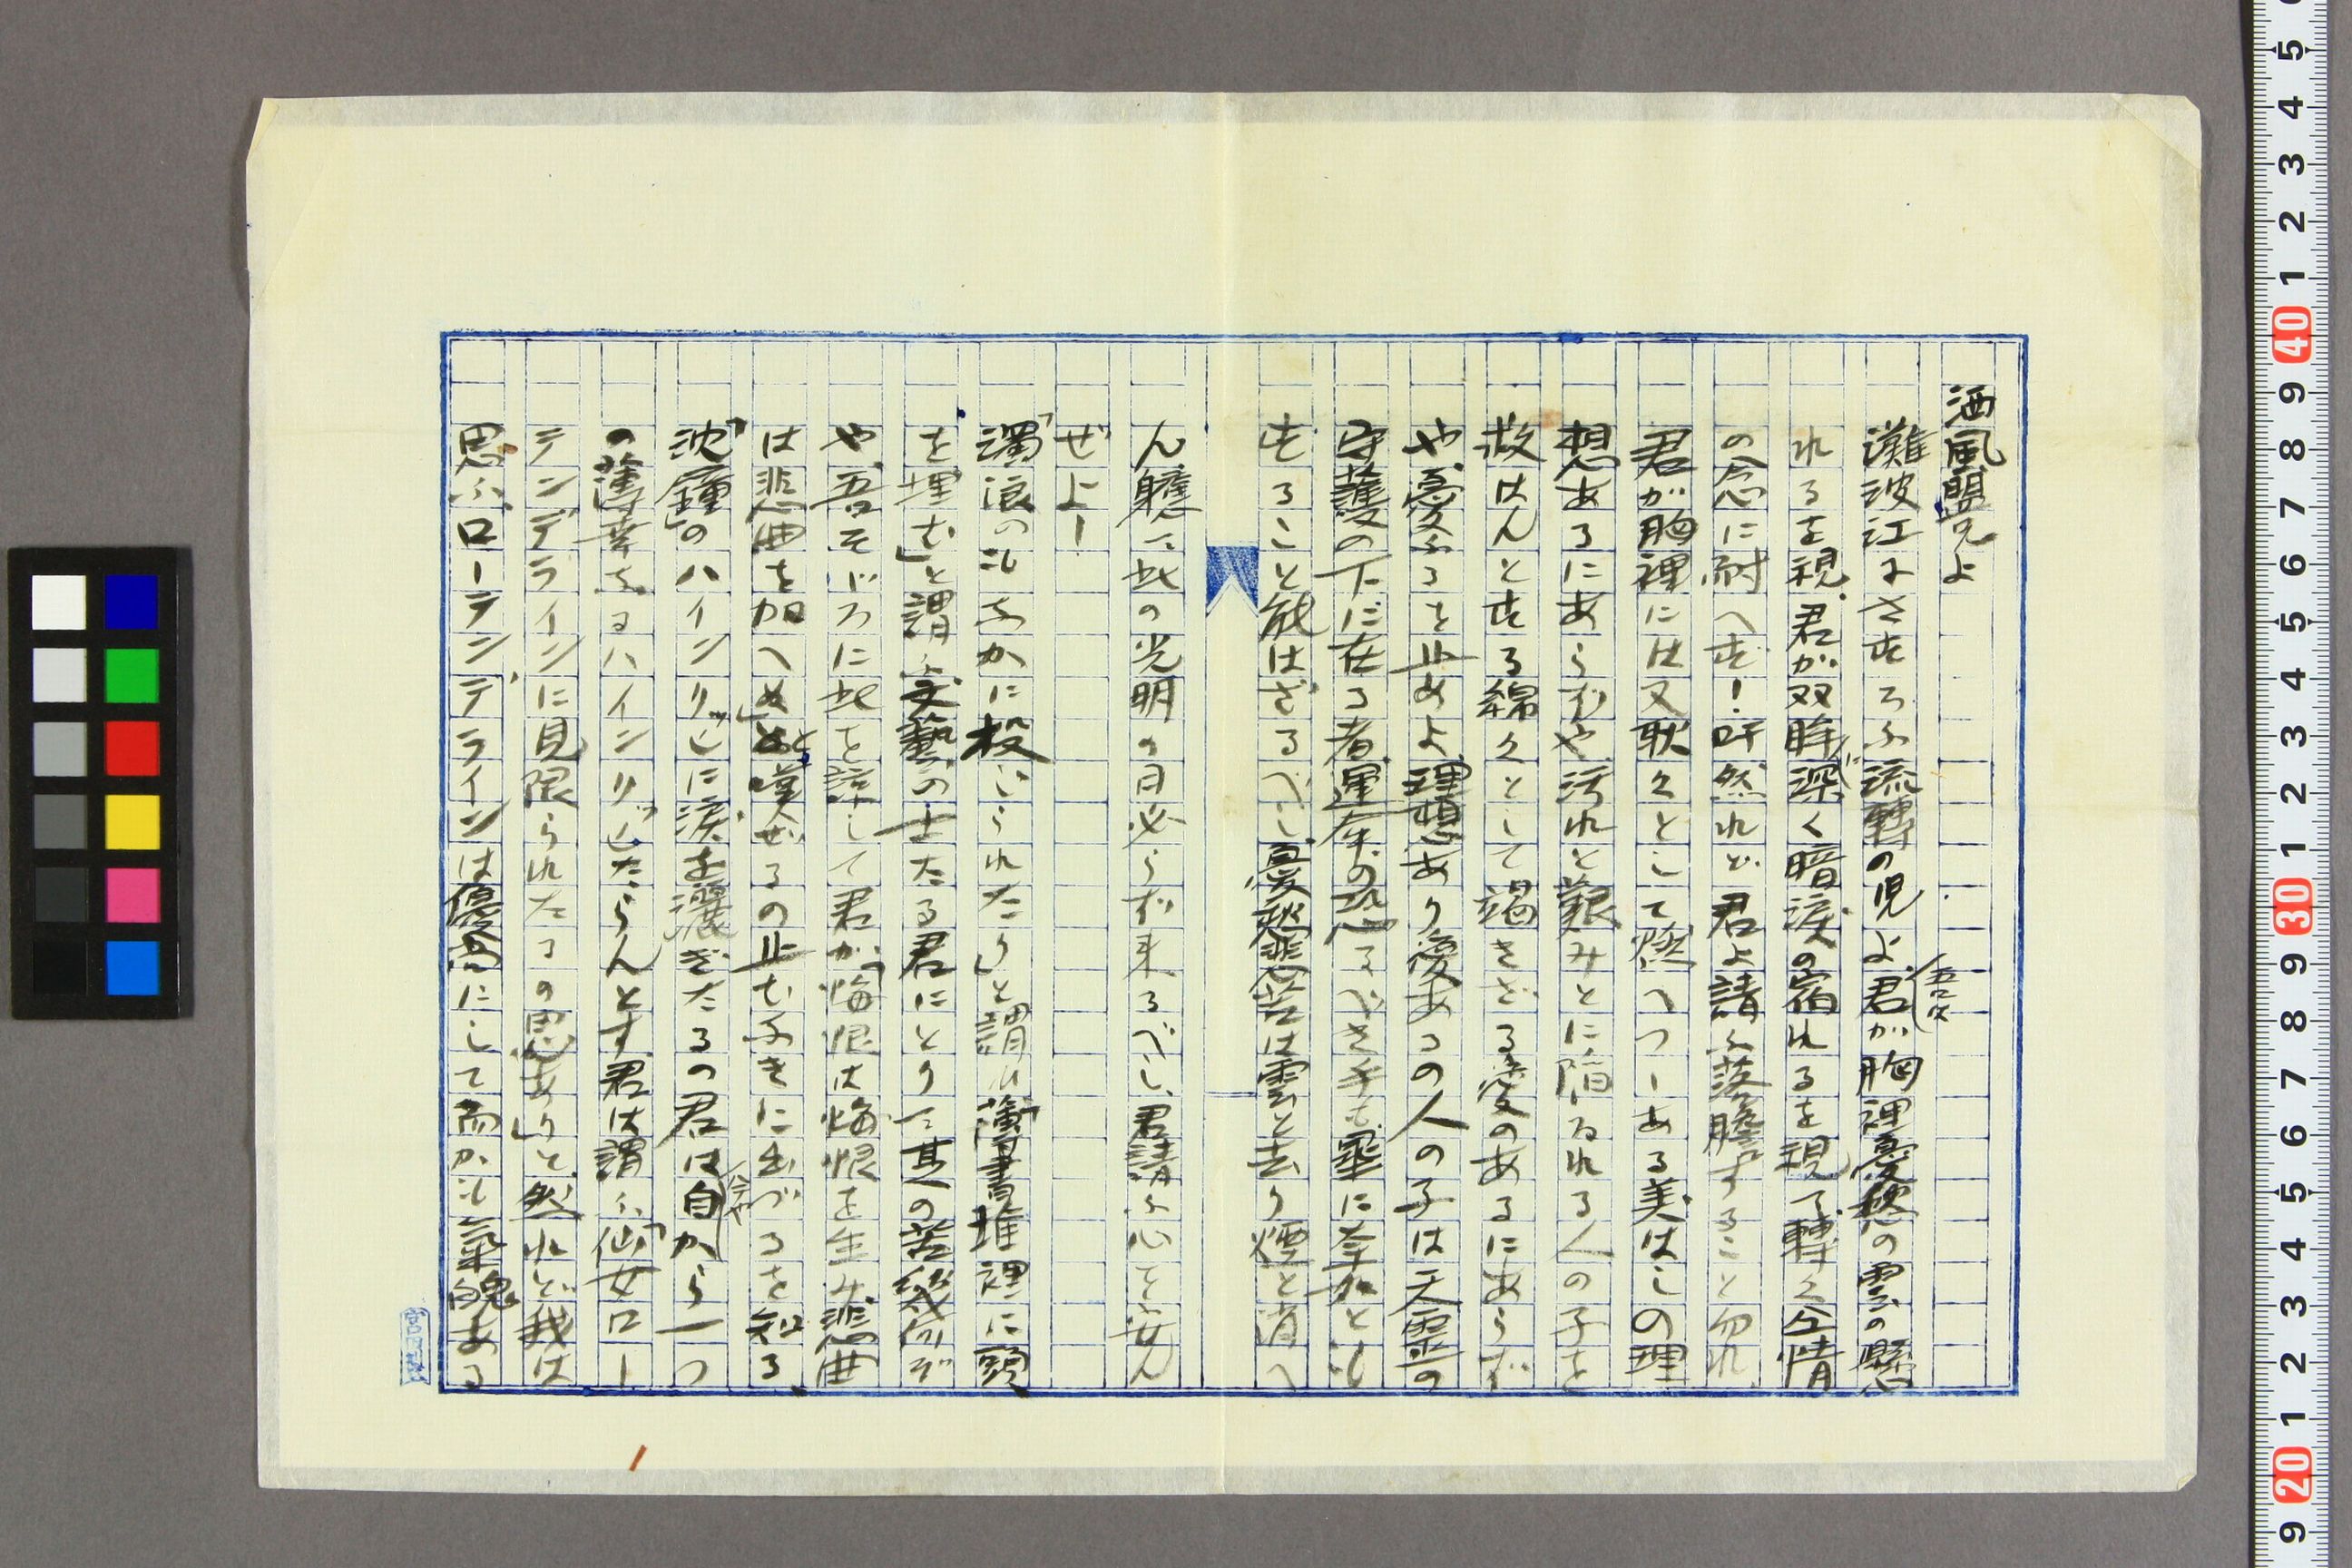 洒風盟兄よ
灘波江にさすろふ流轉の児よ、君が胸裡憂愁の雲の懸
れるを視、君が双眸深く暗涙の宿れるを視て轉々同情
の念に耐へず！吁然れど君よ請ふ落膽すること勿れ
君が胸裡には又耿々として燃へつゝある美はしの理
想あるにあらずや汚れと艱みとに陥ゐれる人の子を
救はんとする綿々として竭きざる愛のあるにあらず
や、憂ふるを止めよ、理想あり愛あるの人の子は天霊の
守護の下に在る者、運命の恐るべき手も軍に奈如とも
することと能はざるべし、憂愁悲苦は雲と去り煙と消へ
ん軈て此の光明の日必らず来るべし、君請ふ心を安ん
ぜよ！
「濁浪のもなかに投じられたり」と謂ひ「薄書堆裡に頭
を埋む」と謂ふ文藝の士たる君にとりて其の苦幾何ぞ
や、吾そゞろに此を諒して君が「悔恨は悔恨を生み、悲曲
は悲曲を加へぬ」と嘆ぜるの止む予きに出づるを知る、
「沈鐘」のハインリッヒに涙を灑ぎたるの君は自から一つ
の薄幸なるハインリッヒたらんとす、君は謂ふ、「仙女ロー
テンデラインに見限られたるの思あり」と、然れど我は
思ふ、ローテンデラインは優高にして而かも氣魄ある